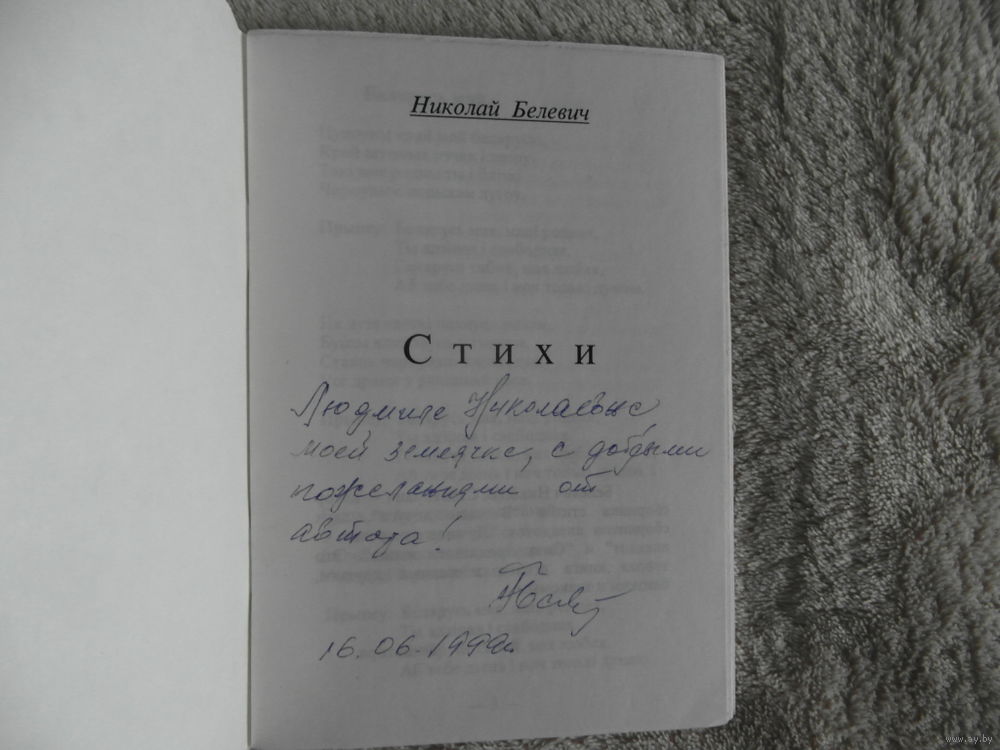 Николай Белевич
Стихи
Людмиле Николаевне
моей землячке, с добрыми
пожеланиями от
автора!
16.06.1999г.
www.ay.by